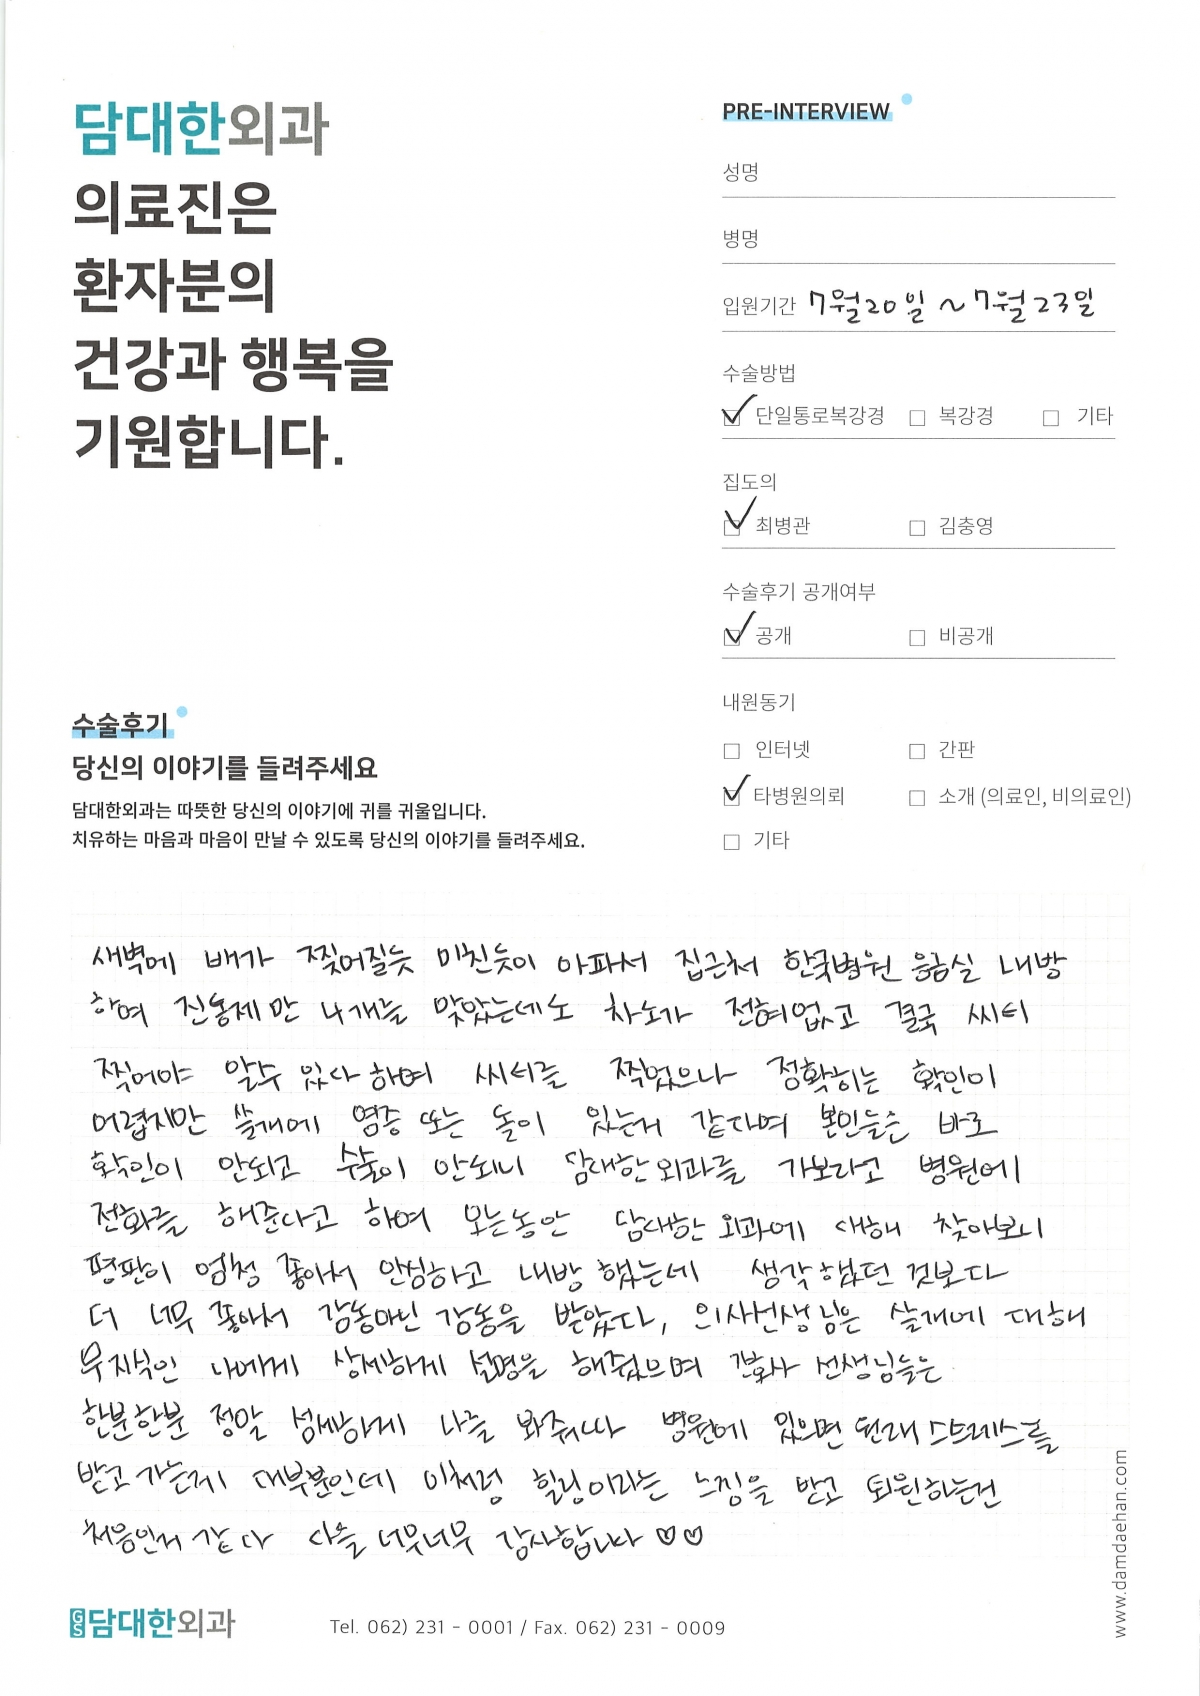 담대한외과
의료진은
환자분의
건강과 행복을
기원합니다.
PRE-INTERVIEW
성명
병명
입원기간 7월20일 ~ 7월23일
수술방법
단일통로복강경 복강경 기타
집도의
최병관 김충영
수술후기 공개여부
공개 비공개
내원동기
인터넷 간판
타병원의뢰 소개 (의료인, 비의료인)
기타
수술후기
당신의 이야기를 들려주세요
담대한외과는 따뜻한 당신의 이야기에 귀를 귀울입니다.
치유하는 마음과 마음이 만날 수 있도록 당신의 이야기를 들려주세요.
새벽에 배가 찢어질듯 미친듯이 아파서 집근처 한국병원 응급실 내방
하여 진통제만 4개를 맞았는데도 차도가 전혀없고 결국 씨티
찍어야 알수 있다하여 씨티를 찍었으나 정확히는 확인이
어렵지만 쓸개에 염증 또는 돌이 있는거 같다며 본인들은 바로
확인이 안되고 수술이 안되니 담대한외과를 가보라고 병원에
전화를 해준다고 하여 모든동안 담대한 외과에 대해 찾아보니
평판이 엄청 좋아서 안심하고 내방 했는데 생각했던 것보다
더 너무 좋아서 감동아닌 감동을 받았다, 의사선생님은 쓸개에 대해
무지식인 나에게 상세하게 설명을 해주셨으며 간호사 선생님들은
한분한분 정말 섬세하게 나를 봐주셨다 병원에 있으면 원래 스트레스를
받고 가는게 대부분인데 이처럼 힐링이라는 느낌을 받고 퇴원하는건
처음인거 같다 다들 너무너무 감사합니다 ♡♡
www.damdaehan.com
GS 담대한외과
Tel. 062) 231 - 0001 / Fax. 062) 231 - 0009